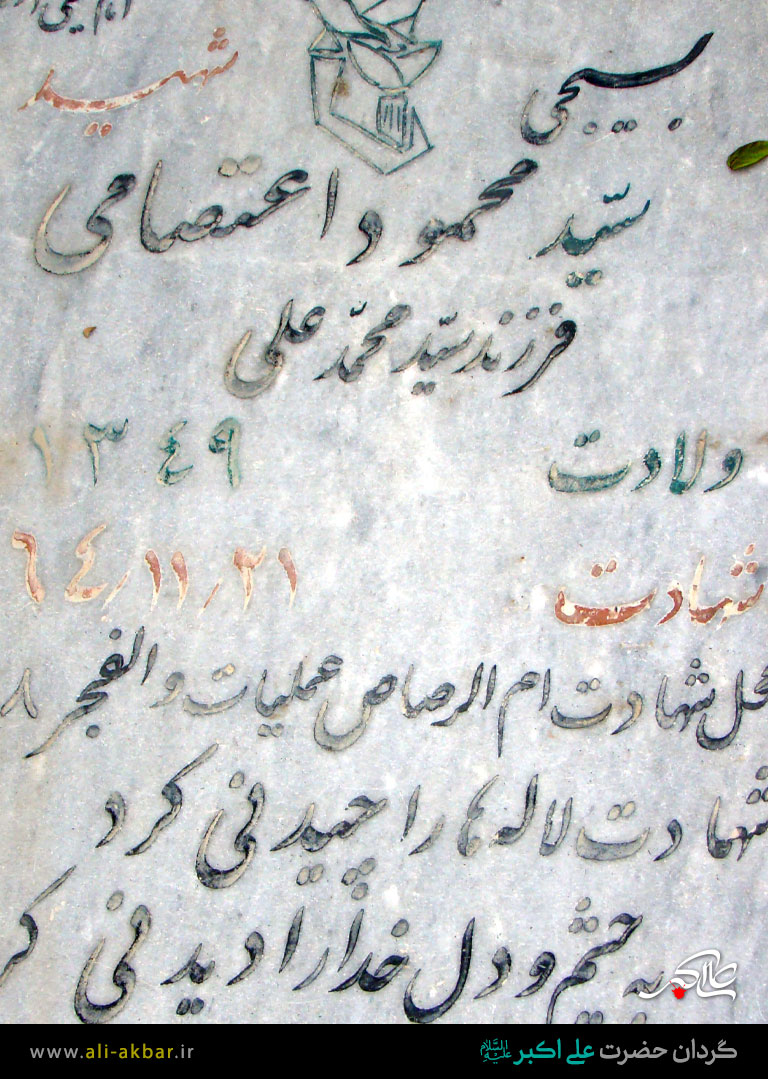 شهید
بسیجی
سیّد محمود اعتصامی
فرزند سیّد محمّد علی
ولادت ۱۳۴۹
شهادت ۶۴/۱۱/۲۱
محل شهادت ام الرصاص عملیات والفجر ۸
شهادت لاله ها را چیدنی کرد
به چشم و دل خدا را دیدنی کر
علی اکبر
گردان حضرت علی اکبر علیه السلام
www.ali-akbar.ir